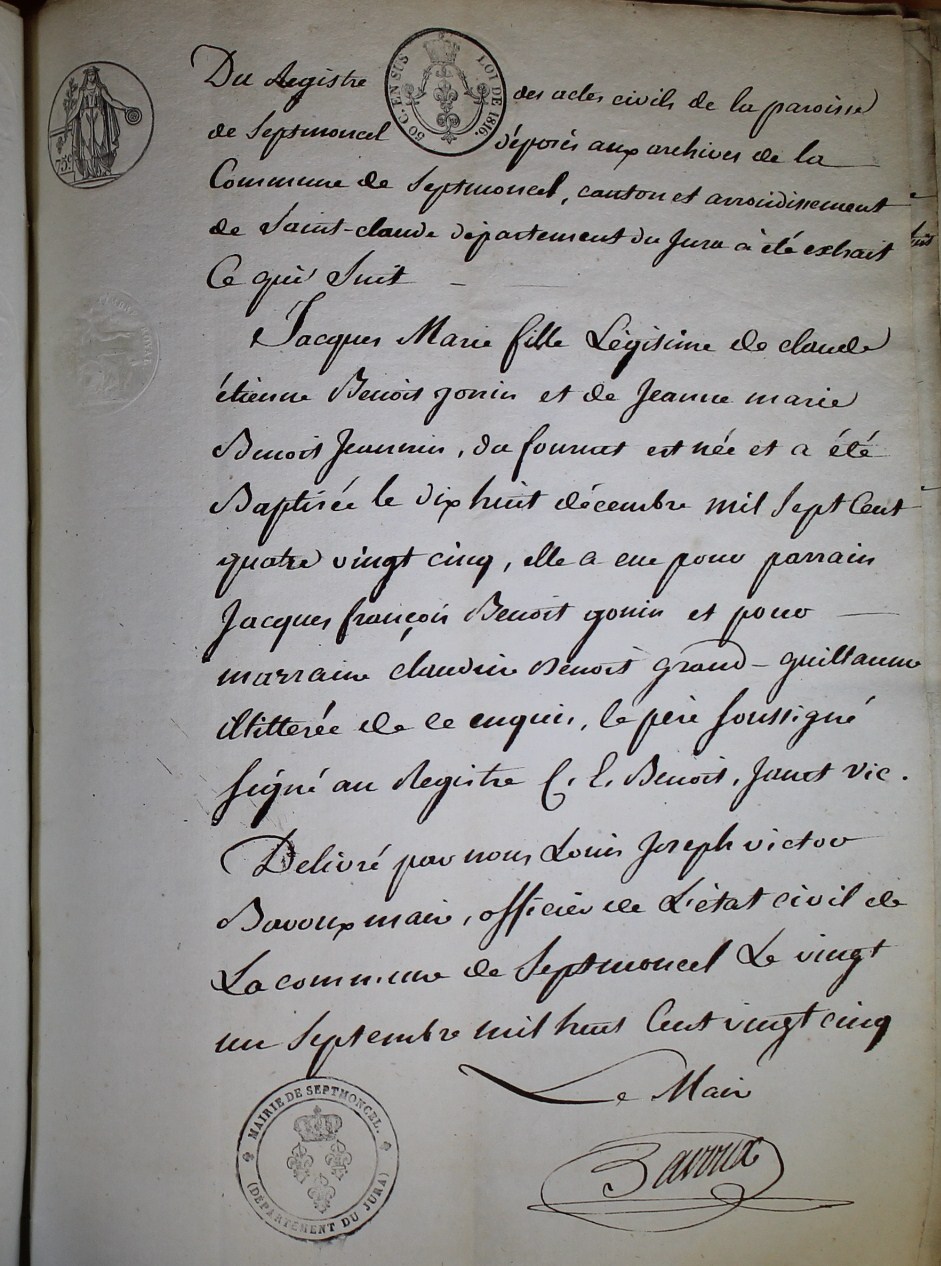 Du Registre des actes civils de la paroisse
50 C. EN SUS LOI DE 1816.
75 c
de Septmoncel déposés aux archives de la
Commune de Septmoncel, canton et arrondissement
de Saint-claude département du Jura a été extrait
Ce qui Suit
Jacques Marie fille Légitime de claude
étienne Benoit gonin et de Jeanne marie
Benoit Jeannin, du fournet est née et a été
Baptisée le dix huit décembre mil Sept Cent
quatre vingt cinq, elle a eue pour parrain
Jacques françois Benoit gonin et pour
marraine claudine Benoit grand-guillaume
illitterée de ce enquise, le père Soussigné
Signé au Registre C. E. Benoit, Janet vic.
Delivré par nous Louis Joseph victor
Bavoux maire, officier de L'état civil de
La commune de Septmoncel Le vingt
un Septembre mil huit Cent vingt cinq
Le Maire
Bavoux
MAIRIE DE SEPTMONCEL.
(DÉPARTEMENT DU JURA)